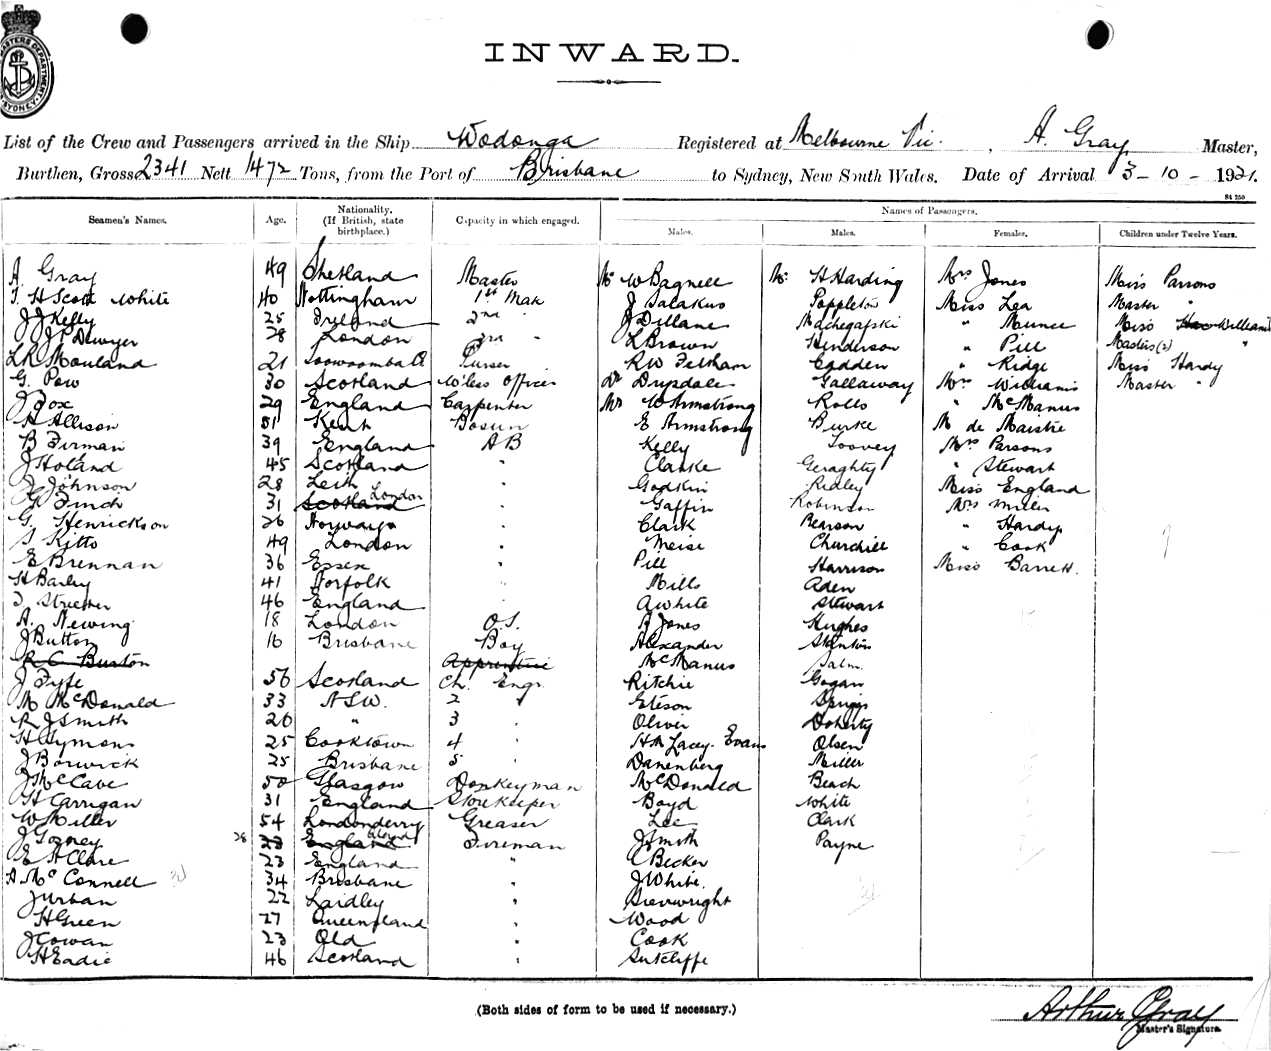 INWARD.
List of the Crew and Passengers arrived in the Ship Wodonga Registered at Melbourne Vic. , A. Gray Master,
Burthen, Gross 2341 Nett 1472 Tons, from the Port of Brisbane to Sydney, New South Wales. Date of Arrival 3-10-1921.
St 250
Seamen's Names. Age. Nationality. (If British, state birthplace.) Capacity in which engaged. Names of Passengers.
Males. Males. Females. Children under Twelve Years.
A Gray 49 Shetland Master Mr W Bagnell Mr H Harding Mrs Jones Miss Parsons
T. H Scott White 40 Nottingham 1st Mate J Salakus Poppleton Miss Lea Master "
J J Kelly 25 Ireland 2nd " J Dillane " Munce Miss Williams
J P Dwyer 28 London 3rd " L Brown Henderson " Pill Masters(2) "
L R Mouland 21 Toowoomba Q Purser R W Feltham Cadden " Ridge Miss Hardy
G. Pow 30 Scotland W'less Officer Dr Drysdale Gallaway Mrs Williams Master "
J Fox 29 England Carpenter Mr W Armstrong Rolls " McManus
A Allison 51 Kent Bosun E Armstrong Burke M de Maistre
B Firman 39 England AB Kelly Toovey Mrs Parsons
J Holand 45 Scotland " Clarke Geraghty " Stewart
J Johnson 28 Leith " Godkin Ridley Miss England
G Finch 31 Scotland London " Gaffin Robinson Mrs Miles
G. Henrickson 26 Norway " Clark Pearson " Hardy
S Kitto 49 London " Meise Churchill " Cook
E Brennan 36 Essex " Pill Harrison Miss Barrett.
H Barley 41 Norfolk " Mills Aden
T Streeter 46 England " A White Stewart
A. Newing 18 London O.S. A Jones Hughes
J Button 16 Brisbane Boy Alexander Stanton
R C Buston Apprentice McManus Salm
J Fyfe 56 Scotland Ch. Engr. Ritchie Gogan
M McDonald 33 NSW. 2 " Eteson Spriggs
R J Smith 26 " 3 Oliver Doherty
H Symons 25 Cooktown 4 " H M Lacey-Evans Olsen
J Borwick 25 Brisbane 5 " Danenberg Miller
J McCabe 50 Glasgow Donkeyman McDonald Beach
H Carrigan 31 England Storekeeper Boyd White
W Miller 54 Londonderry Greaser Lee Clark
J Gorney 28 23 England Fireman J Smith Payne
E H Clare 23 England " C Becker
A McConnell 34 Brisbane " J White.
J Urban 22 Laidley " Sievwright
H Green 27 Queensland " Wood
J Cowan 23 Qld " Cook
H Eadie 46 Scotland " Sutcliffe
(Both sides of form to be used if necessary.)
Arthur Gray
Master's Signature.